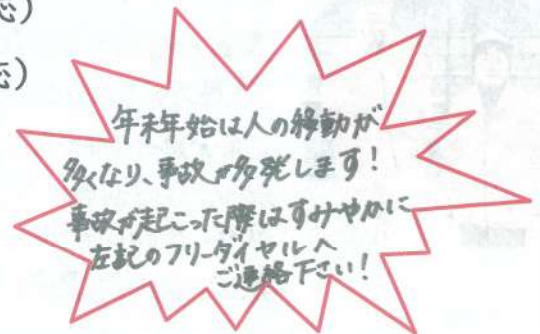 応)
応)
年末年始は人の移動が
多くなり、事故が多発します!
事故が起こった際はすみやかに
左記のフリーダイヤルへ
ご連絡下さい!